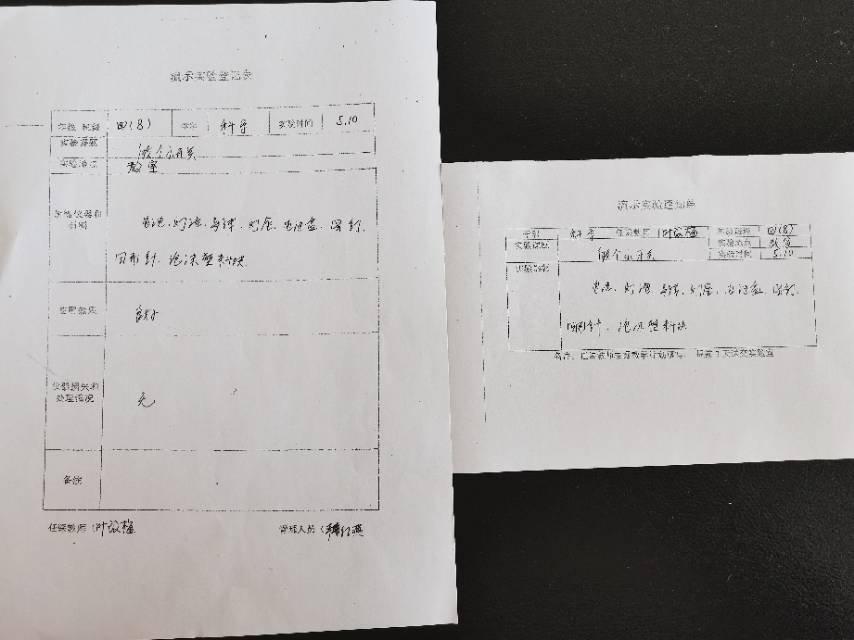 演示实验登记表
年级 班级 四(8) 学科 科学 实验时间 5.10
实验课题 做个小开关
实验地点 教室
实验仪器和材料
电池、灯泡、导线、灯座、电池盒、图钉、
回形针、泡沫塑料块
实验效果 良好
仪器损失和处理情况 无
备注
任课教师 叶
管理人员
演示实验通知单
学科 科学 任课教师 叶 年级班级 四(8)
实验课题 做个小开关 实验地点 教室
实验时间 5.10
实验仪器
电池、灯泡、导线、灯座、电池盒、图钉、
回形针、泡沫塑料块